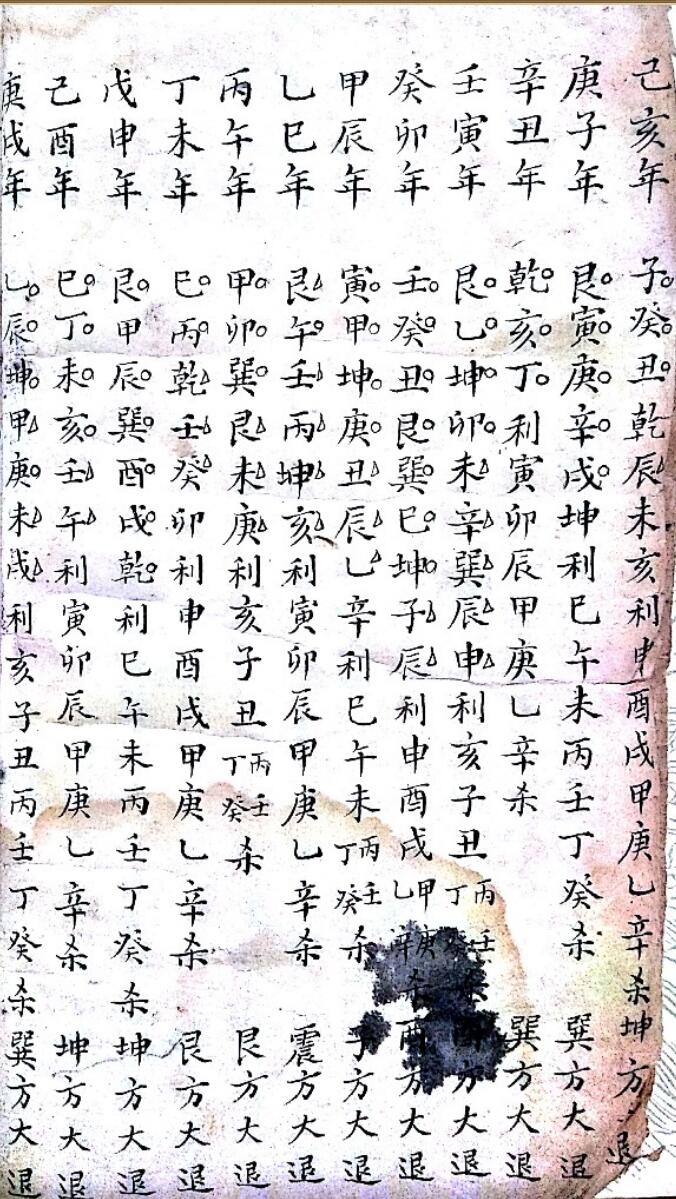 己亥年 子癸丑乾辰未亥利申酉戌甲庚乙辛杀坤方退
庚子年 艮寅庚辛戌坤利巳午未丙壬丁癸杀 巽方大退
辛丑年 乾亥丁利寅卯辰甲庚乙辛杀 巽方大退
壬寅年 艮乙坤卯未辛巽辰申利亥子丑丙壬丁癸杀 方大退
癸卯年 壬癸丑艮巽巳坤子辰利申酉戌甲庚乙辛杀酉方大退
甲辰年 寅甲坤庚丑辰乙辛利巳午未丙壬丁癸杀 子方大退
乙巳年 艮午壬丙坤亥利寅卯辰甲庚乙辛杀 震方大退
丙午年 甲卯巽艮未庚利亥子丑丙壬丁癸杀 艮方大退
丁未年 巳丙乾壬癸卯利申酉戌甲庚乙辛杀 艮方大退
戊申年 艮甲辰巽酉戌乾利巳午未丙壬丁癸杀 坤方大退
己酉年 巳丁未亥壬午利寅卯辰甲庚乙辛杀 坤方大退
庚戌年 乙辰坤甲庚未戌利亥子丑丙壬丁癸杀 巽方大退